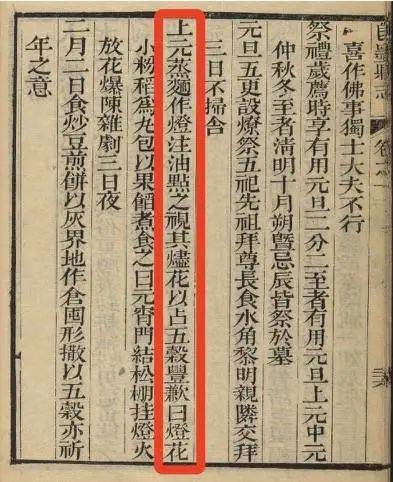 喜作佛事獨士大夫不行
祭禮歲薦時享有用元旦二分二至者有用元旦上元中元
仲秋冬至者清明十月朔曁忌辰皆祭於墓
元旦五更設燎祭五祀先祖拜尊長食水角黎明親隣交拜
三日不掃舍
上元蒸麵作燈注油點之視其燼花以占五穀豐歉曰燈花
小粉稻爲丸包以果餡煮食之曰元宵門結松棚挂燈火
放花爆陳雜劇三日夜
二月二日食炒豆煎餅以灰界地作倉囤形撒以五穀亦祈
年之意